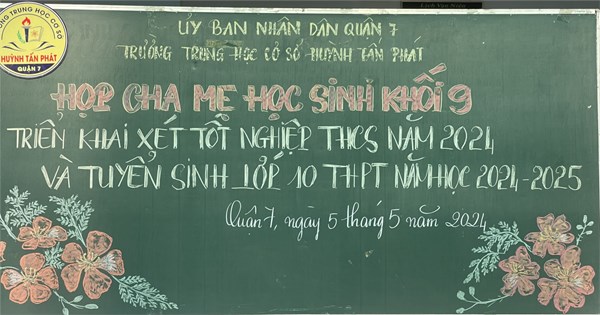 TRƯỜNG TRUNG HỌC CƠ SỞ
HUỲNH TẤN PHÁT
QUẬN 7
ỦY BAN NHÂN DÂN QUẬN 7
TRƯỜNG TRUNG HỌC CƠ SỞ HUỲNH TẤN PHÁT
HỌP CHA MẸ HỌC SINH KHỐI 9
TRIỂN KHAI XÉT TỐT NGHIỆP THCS NĂM 2024
VÀ TUYỂN SINH LỚP 10 THPT NĂM HỌC 2024-2025
Quận 7, ngày 5 tháng 5 năm 2024